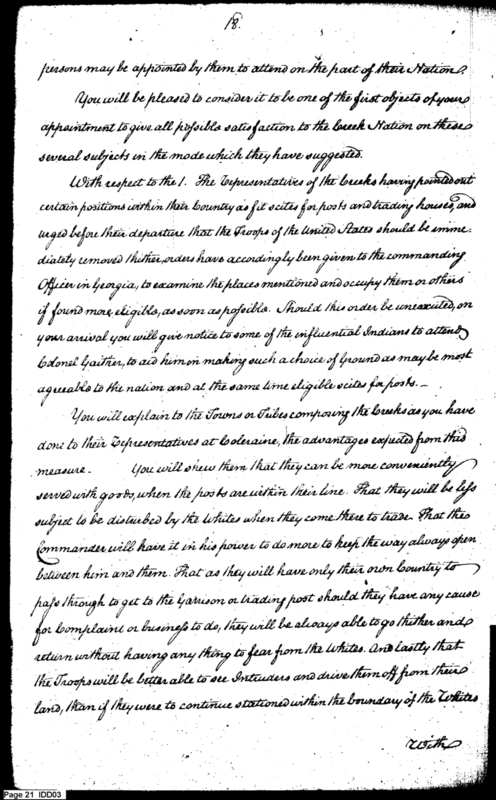 18.
persons may be appointed by them to attend on the part of their Nation.
You will be pleased to consider it to be one of the first objects of your
appointment to give all possible satisfaction to the Creek Nation on these
several subjects in the mode which they have suggested.
With respect to the 1. The Representatives of the Creeks having pointed out
certain positions within their Country as fit scites for posts and trading houses, and
urged before their departure that the Troops of the United States should be imme-
diately removed thither, orders have accordingly been given to the commanding
Officer in Georgia, to examine the places mentioned and occupy them or others
if found more eligible, as soon as possible. Should this order be unexecuted, on
your arrival you will give notice to some of the influential Indians to attend
Colonel Gaither, to aid him in making such a choice of Ground as may be most
agreeable to the nation and at the same time eligible scites for posts. _
You will explain to the Towns or Tribes composing the Creeks as you have
done to their Representatives at Coleraine, the advantages expected from this
measure. You will shew them that they can be more conveniently
served with goods, when the posts are within their line. That they will be less
subject to be disturbed by the Whites when they come there to trade. That the
Commander will have it in his power to do more to keep the way always open
between him and them. That as they will have only their own Country to
pass through to get to the Garrison or trading post should they have any cause
for Complaint or business to do, they will be always able to go thither and
return without having any thing to fear from the Whites. And lastly that
the Troops will be better able to see Intruders and drive them off from their
land, than if they were to continue stationed within the boundary of the Whites
With
Page 21 IDD03